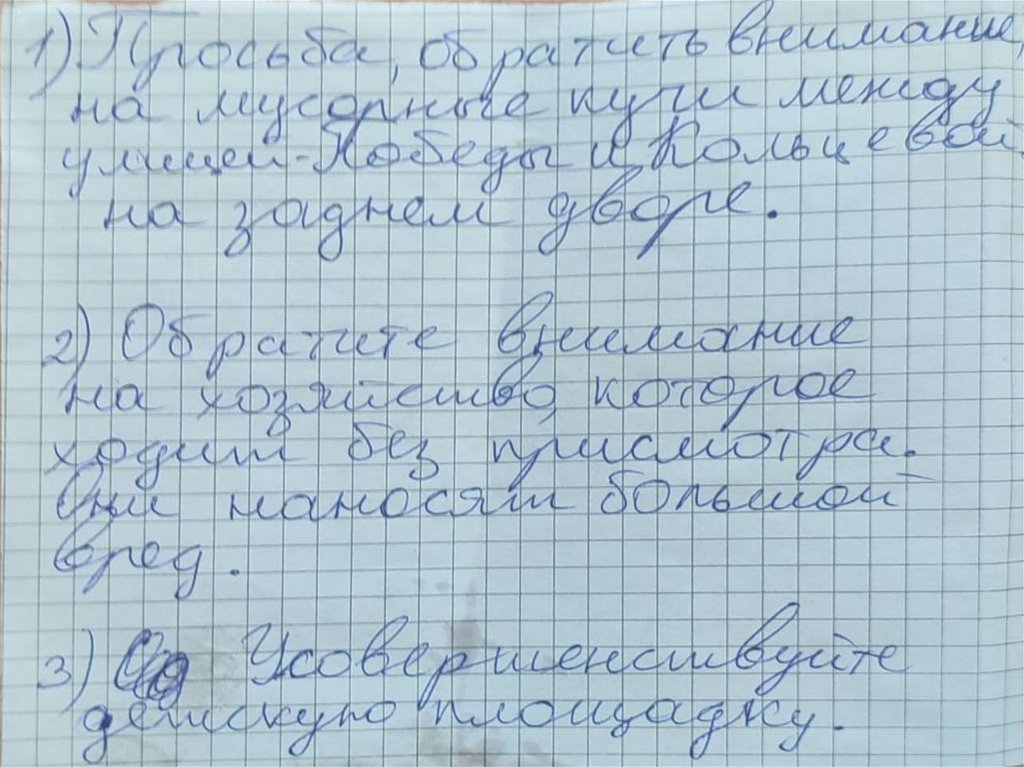 1) Просьба, обратить внимание,
на мусорные кучи между
улицей-Победы и Кольцевой.
на заднем дворе.
2) Обратите внимание
на хозяйство, которое
ходит без присмотра.
Они наносят большой
вред.
3) Усовершенствуйте
детскую площадку.